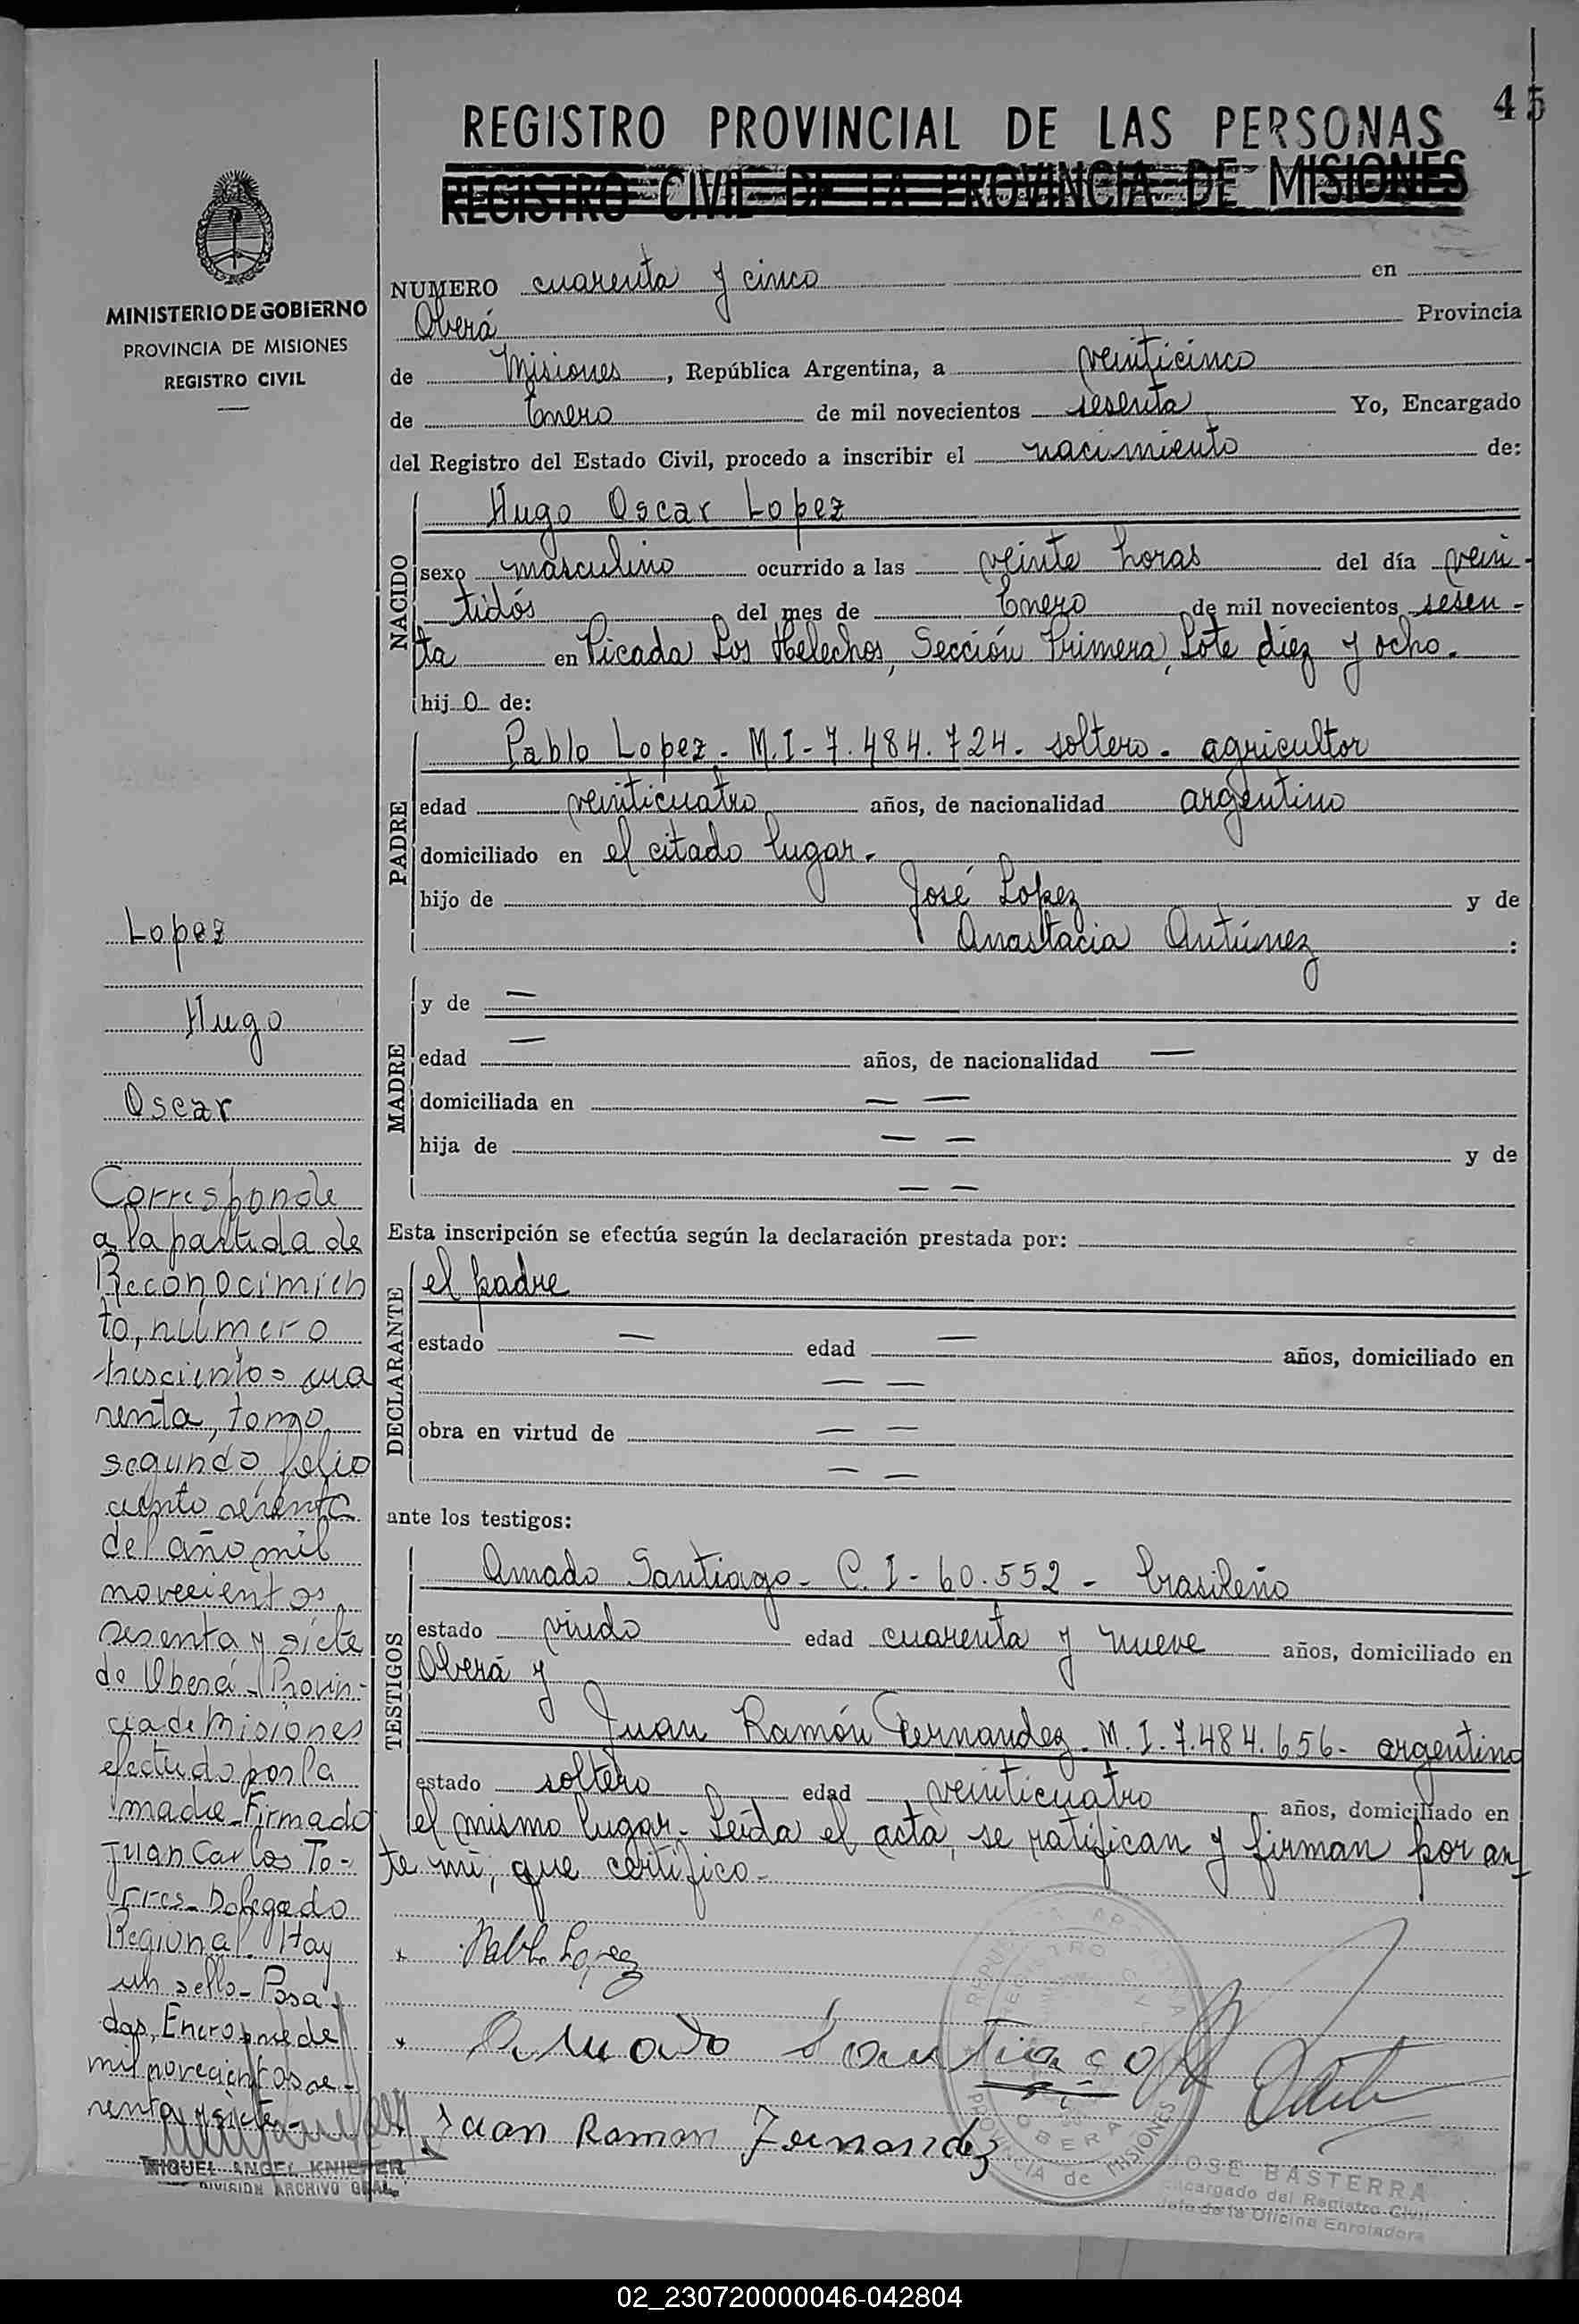 45
REGISTRO PROVINCIAL DE LAS PERSONAS
REGISTRO CIVIL DE LA PROVINCIA DE MISIONES
MINISTERIO DE GOBIERNO
PROVINCIA DE MISIONES
REGISTRO CIVIL
NUMERO cuarenta y cinco en
Oberá Provincia
de Misiones, República Argentina, a veinticinco
de Enero de mil novecientos sesenta Yo, Encargado
del Registro del Estado Civil, procedo a inscribir el nacimiento de:
NACIDO
Hugo Oscar Lopez
sexo masculino ocurrido a las veinte horas del día vein-
tidós del mes de Enero de mil novecientos sesen-
ta en Picada Los Helechos, Sección Primera, Lote diez y ocho.
hij o de:
PADRE
Pablo Lopez - M.I-7.484.724- soltero - agricultor
edad veinticuatro años, de nacionalidad argentino
domiciliado en el citado lugar.-
hijo de José Lopez y de
Anastacia Antúnez :
MADRE
y de —
edad — años, de nacionalidad —
domiciliada en — —
hija de — — y de
— —
Esta inscripción se efectúa según la declaración prestada por:
DECLARANTE
el padre
estado — edad — años, domiciliado en
— —
obra en virtud de — —
— —
ante los testigos:
TESTIGOS
Amado Santiago - C.I-60.552 - brasileño
estado viudo edad cuarenta y nueve años, domiciliado en
Oberá y
Juan Ramón Fernandez - M.I.7.484.656- argentino
estado soltero edad veinticuatro años, domiciliado en
el mismo lugar.- Leída el acta, se ratifican y firman por an-
te mí, que certifico.-
Pablo Lopez
Amado Santiago
Juan Ramon Fernandez
REPUBLICA ARGENTINA
REGISTRO CIVIL
OBERA
PROVINCIA de MISIONES
JOSE BASTERRA
Encargado del Registro Civil
Jefe de la Oficina Enroladora
Lopez
Hugo
Oscar
Corresponde
a la partida de
Reconocimien
to, número
trescientos cua
renta, tomo
segundo, folio
ciento sesenta
del año mil
novecientos
sesenta y siete
de Oberá - Provin-
cia de Misiones
efectuado por la
madre - Firmado
Juan Carlos To-
rres - Delegado
Regional. Hay
un sello - Posa
das, Enero nueve de
mil novecientos se-
tenta y siete -
MIGUEL ANGEL KNIETER
DIVISION ARCHIVO GRAL.
02_230720000046-042804